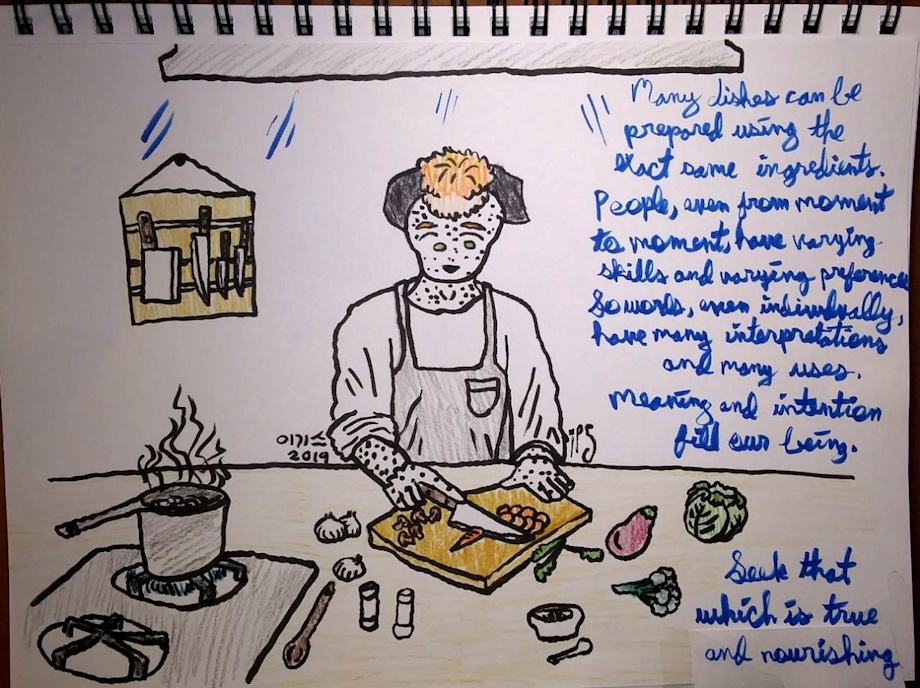 Many dishes can be
prepared using the
exact same ingredients.
People, even from moment
to moment, have varying
skills and varying preferences
So words, even individually,
have many interpretations
and many uses.
Meaning and intention
fill our being.
이기스
2019
ips
Seek that
which is true
and nourishing